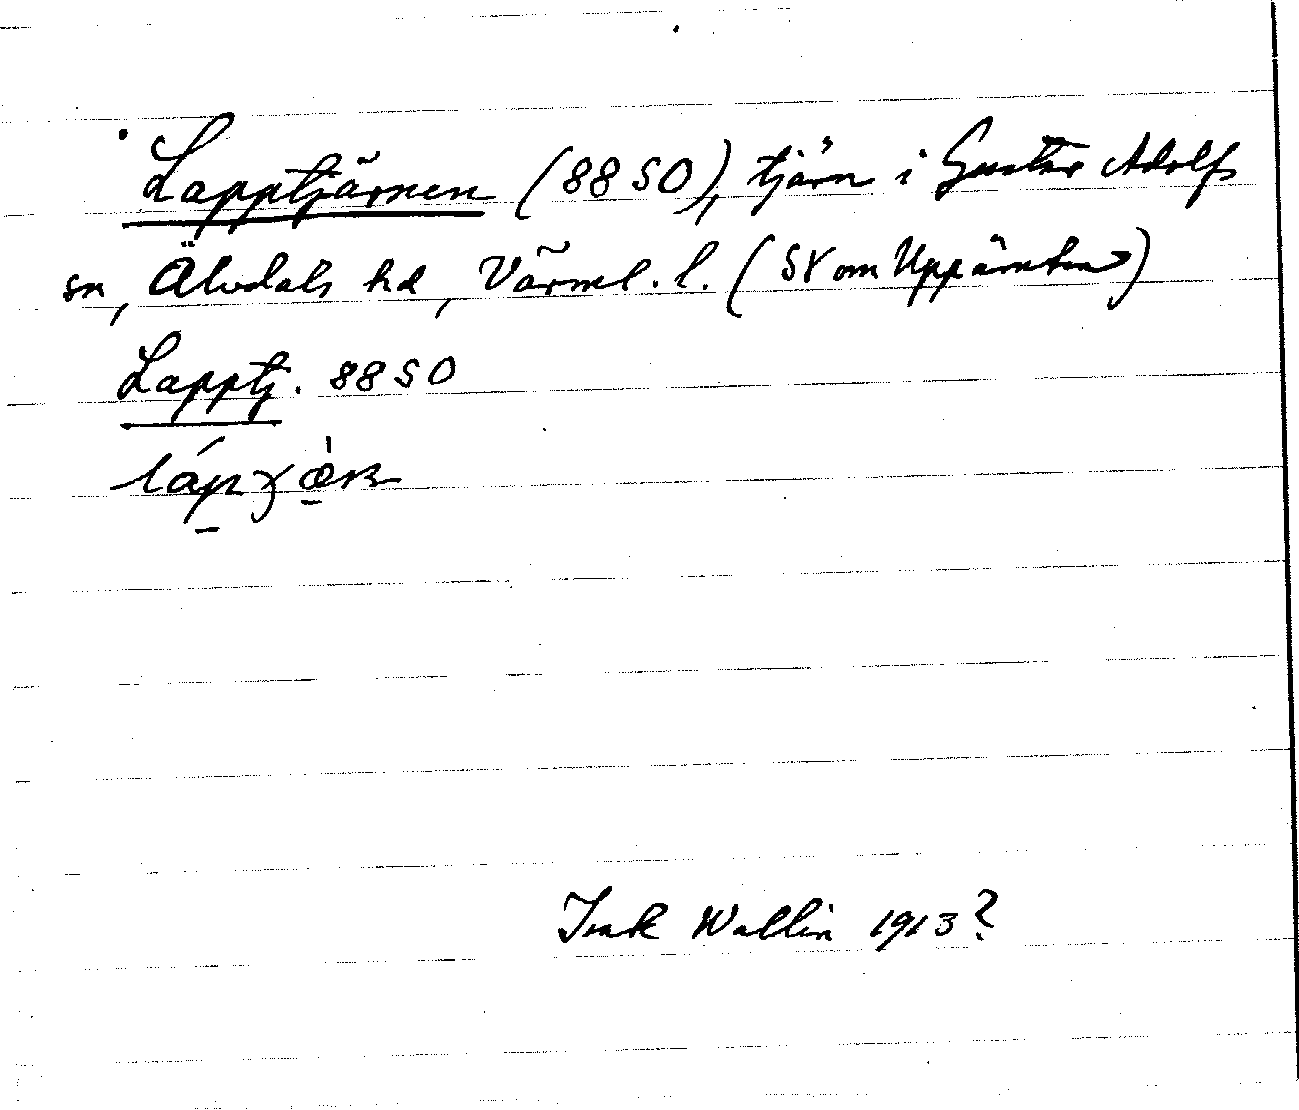 Lapptjärnen (8850), tjärn i Gustav Adolfs
sn, Älvdals hd, Värml. l. (SV om Uppämten)
Lapptj. 8850
Isak Wallin 1913?